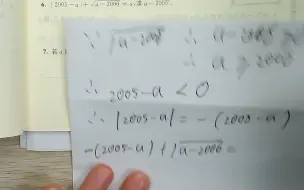 6. |2005-a|+√a-2006=a,求a-2005².
7. 若a
∵ √a-2006 ∴ a-2006 ≥
∴ a ≥ 2006
∴ 2005-a < 0
∴ |2005-a| = -(2005-a)
-(2005-a)+√a-2006 =